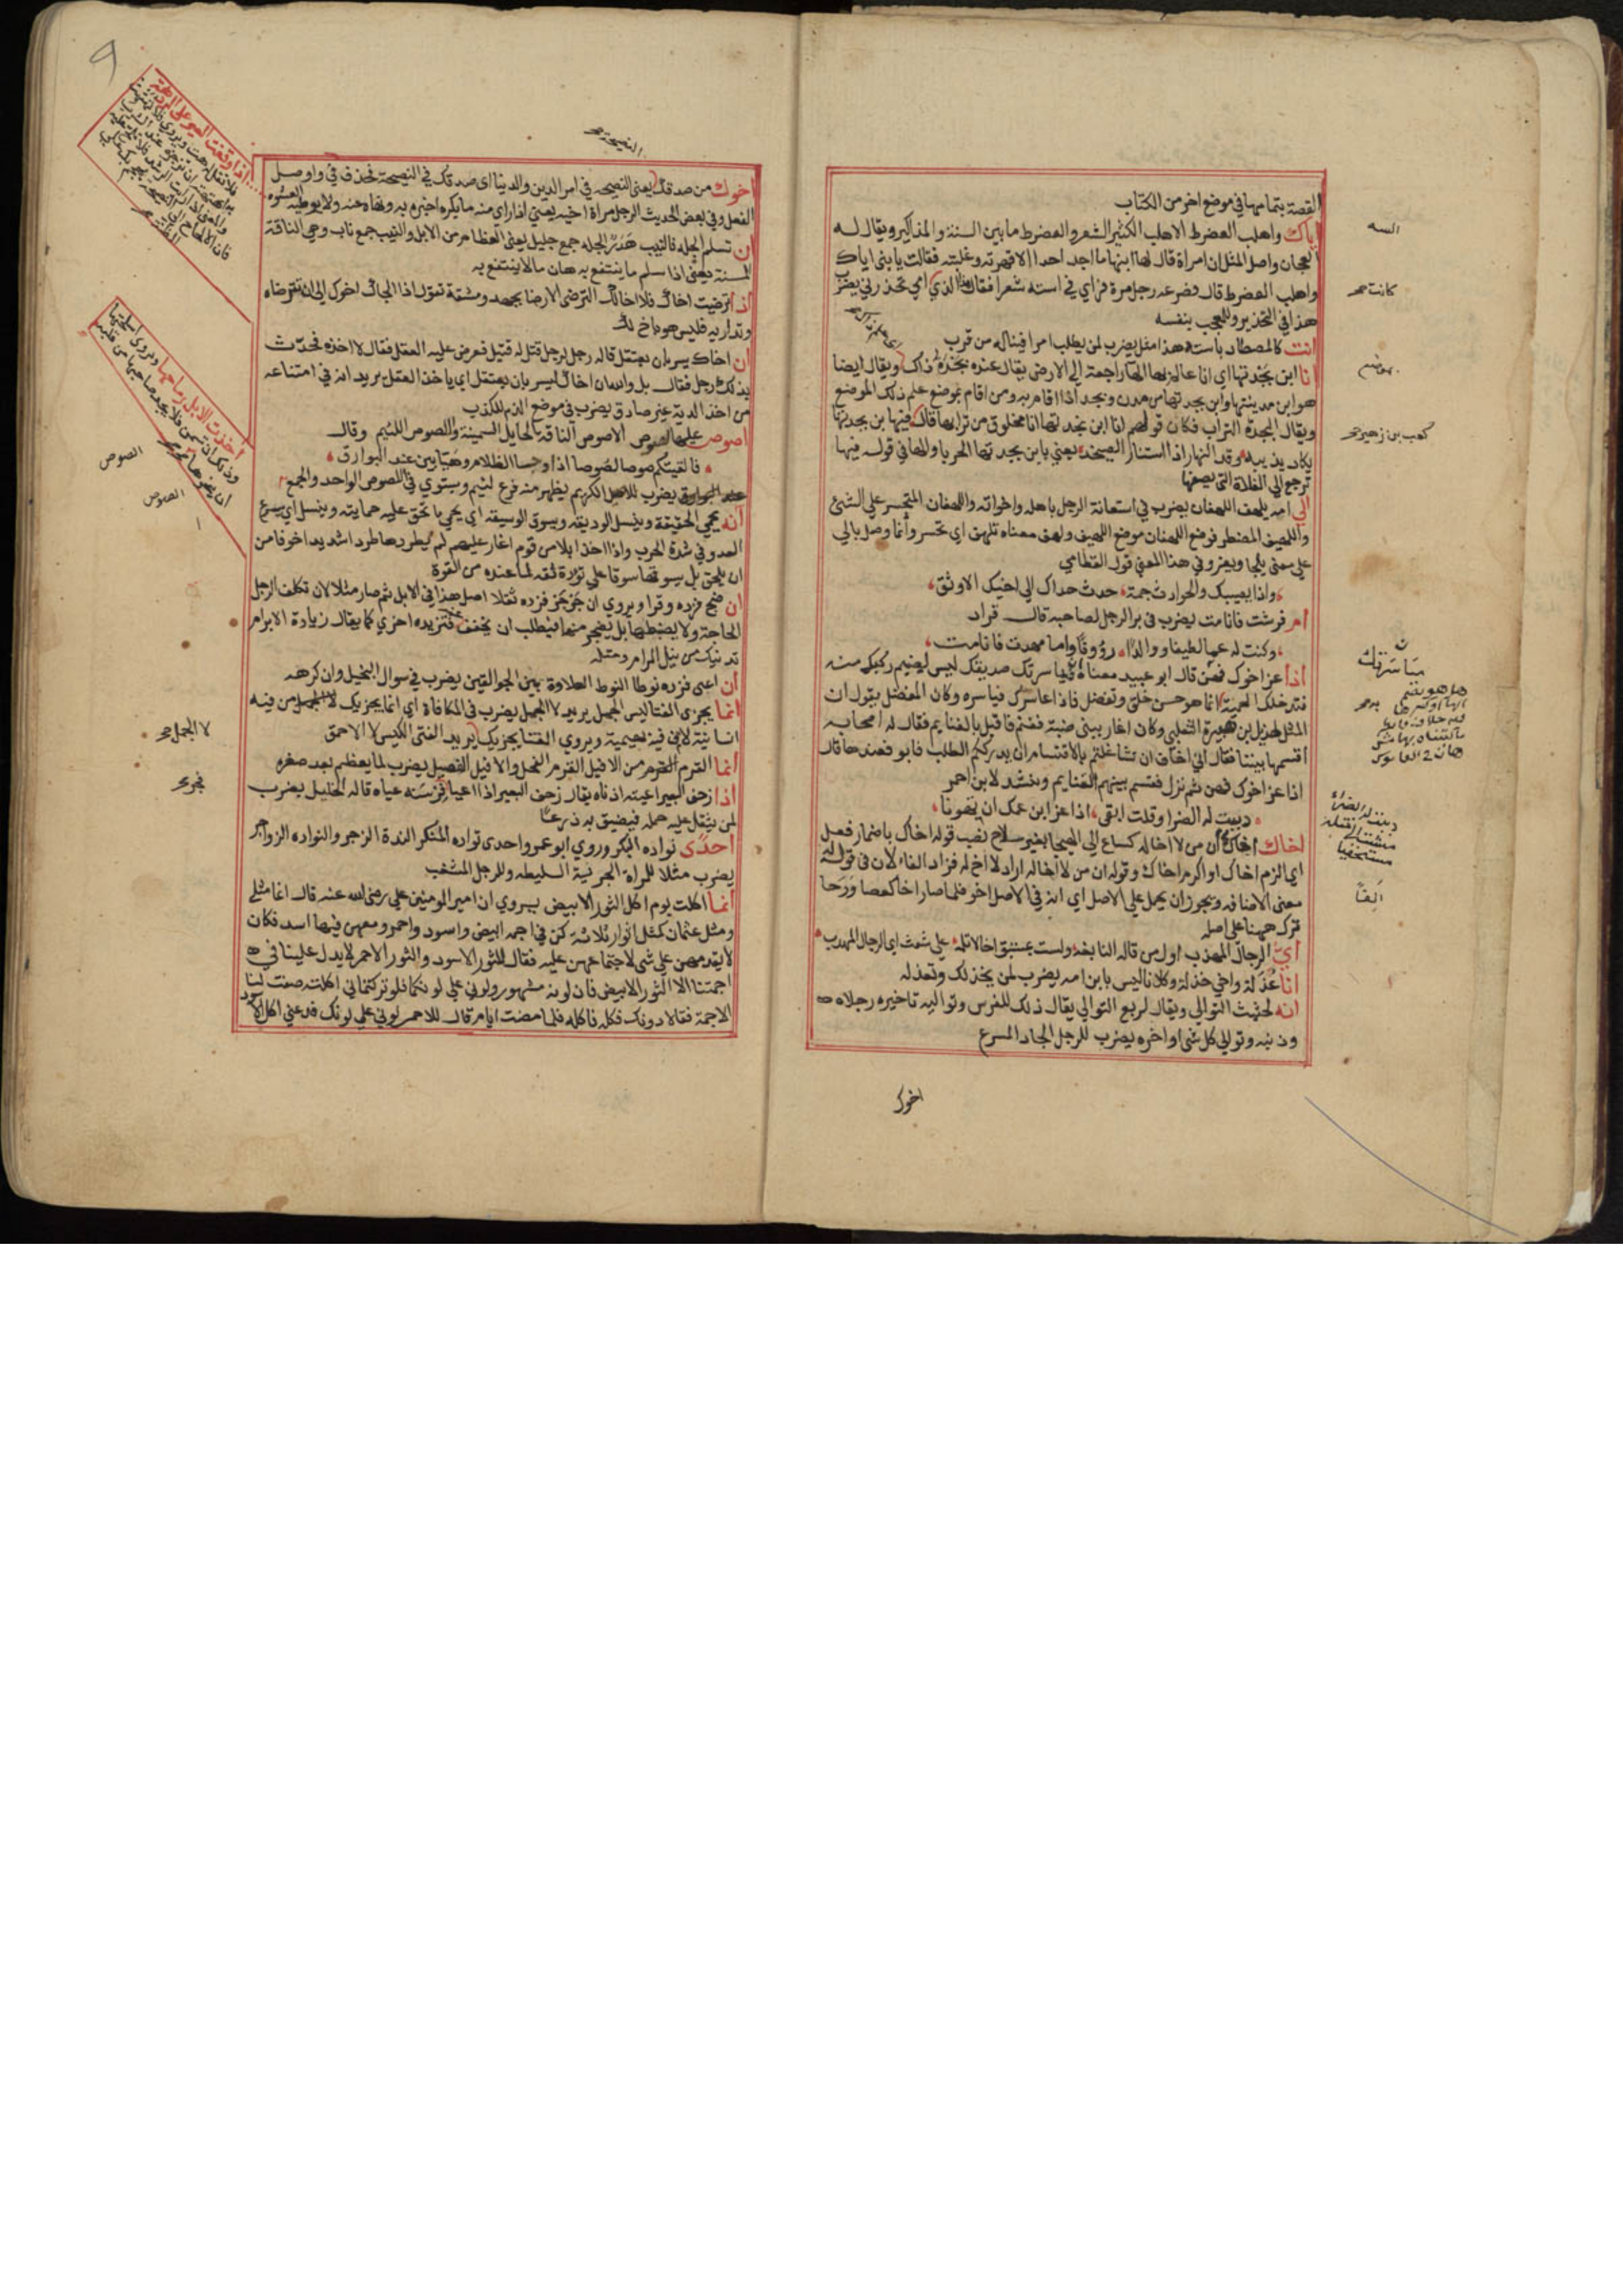 القصة بتمامها في موضع اخر من الكتاب
اياك واهلب العضرط الاهلب الكثير الشعر والعضرط ما بين السنة والمذاكير ويقال له
العجان واصل المثل ان امراة قال لها ابنها ما اجد احدا الا قهرته وغلبته فقالت يا بني اياك
واهلب العضرط قال فصرعه رجل مرة فراي في استه شعرا فقال هذا الذي امي تحذرني يضرب
هذا في التحذير وللعجب بنفسه
انت كالمصطاد باسته هذا مثل يضرب لمن يطلب امرا فيناله من قرب
انا ابن بجدتها اي انا عالم بها الهاء راجعة الي الارض يقال عنده بجدة ذاك ويقال ايضا
هو ابن مدينتها وابن بجدتها من مدن وبجد اذا اقام به ومن اقام بموضع علم ذلك الموضع
ويقال البجدة التراب فكان قولهم انا ابن بجدتها انا مخلوق من ترابها قال فيها ابن بجدتها
يكاد يذيبه وقد النهار اذا استنار الصيخد يعني بابن بجدتها الحربا والها في قوله فيها
ترجع الي الفلاة التي يصفها
الي امه يلهف اللهفان يضرب في استعانة الرجل باهله واخوانه واللهفان المتحسر علي الشئ
واللهيف المضطر فوضع اللهفان موضع اللهيف ولهف معناه تلهف اي تحسر وانما وصل بالي
علي معني يلجا ويفر وفي هذا المعني قول القطامي
واذا يصيبك والحوادث جمة حدث حداك الي اخيك الاوثق
ام فرشت فانامت يضرب في بر الرجل لصاحبه قال قراد
وكنت له عما لطيفا ووالدا رؤوفا واما مهدت فانامت
اذا عز اخوك فهن قال ابو عبيد معناه مياسرتك صديقك ليس لضيم ركبك منه
فتدخلك الحمية انما هو حسن خلق وتفضل فاذا عاسرك فياسره وكان المفضل يقول ان
المثل لهذيل بن هبيرة الثعلبي وكان اغار ببني ضبة فغنم فاقبل بالغنايم فقال له اصحابه
اقسمها بيننا فقال اني اخاف ان تشاغلتم بالاقتسام ان يدرككم الطلب فابوا فعندها قال
اذا عز اخوك فهن ثم نزل فقسم بينهم الغنايم وينشد لابن احمر
دببت له الضرا وقلت ابقي اذا عز ابن عمك ان تهونا
اخاك اخاك ان من لا اخا له كساع الي الهيجا بغير سلاح نصب قوله اخاك باضمار فعل
اي الزم اخاك او اكرم اخاك وقوله ان من لا اخا له اراد لا اخ له فزاد الفا لان في قوله له
معني الاضافة ويجوز ان يحمل علي الاصل اي انه في الاصل اخو فلما صار اخا كعصا ورحا
ترك ههنا علي اصله
اي الرجال المهذب اول من قاله النابغة ولست بمستبق اخا لا تلمه علي شعث اي الرجال المهذب
انا عذلة واخي خذلة وكلانا ليس بابن امه يضرب لمن يخذلك وتعذله
انه لحثيث التوالي ويقال لسريع التوالي يقال ذلك للفرس وتواليه ماخيره رجلاه
وذنبه وتوالي كل شئ اواخره يضرب للرجل الجاد المسرع
اخوك
السه
كعب بن زهير صح
الفا
النصيحة صح
اخوك من صدقك يعني النصيحه في امر الدين والدنيا اي صدقك في النصيحة فحذف في واوصل
الفعل وفي بعض الحديث الرجل مراة اخيه يعني اذا راي منه ما يكره اخبره به ونهاه عنه ولا يوطيه العشوه
ان تسلم الجلة فالنيب هدر الجلة جمع جليل يعني العظام من الابل والنيب جمع ناب وهي الناقة
المسنة يعني اذا سلم ما ينتفع به هان ما لا ينتفع به
اذا ترضيت اخاك فلا اخا لك الترضي الارضا بجهد ومشقة تقول اذا الجاك اخوك الي ان تترضاه
وتداريه فليس هو باخ لك
ان اخاك ليسر بان يعتقل قاله رجل لرجل قتل له قتيل فعرض عليه العقل فقال لا اخذه فحدث
بذلك رجل فقال بل والله ان اخاك ليسر بان يعتقل اي ياخذ العقل يريد انه في امتناعه
من اخذ الدية غير صادق يضرب في موضع الذم للكذب
اصوص عليها صوص الاصوص الناقة الحايل السمينة والصوص اللئيم وقال
فالفيتكم صوصا لصوصا اذا دجا الظلام وهيابين عند البوارق
يضرب للاصل الكريم يظهر منه فرع لئيم ويستوي في اللصوص الواحد والجمع
انه يحمي الحقيقة وينسل الوديقة ويسوق الوسيقه اي يحمي ما تحق عليه حمايته وينسل اي يسرع
العدو في شدة الحر واذا اخذ ابلا من قوم اغار عليهم لم يطردها طردا شديدا خوفا من
ان يلحق بل يسوقها سوقا علي تؤدة ثقة بما عنده من القوة
ان ضج فزده وقرا ويروي ان جرجر فزده ثقلا اصل هذا في الابل ثم صار مثلا لان تكلف الرجل
الحاجة ولا يضبطها بل يضجر منها فيطلب ان يخفف عنه فتزيده اخري كما يقال زيادة الابرام
تدنيك من نيل المرام ومثله
ان اعيي فزده نوطا النوط العلاوة بين الجوالقين يضرب في سوال البخيل وان كرهه
انما يجزي الفتا ليس الجمل يريد لا الجمل يضرب في المكافاة اي انما يجزيك من فيه
انسانية لا من فيه بهيمية ويروي الفتا يجزيك يريد الفتي الكيس لا الاحمق
انما القرم من الافيل القرم الفحل والافيل الفصيل يضرب لما يعظم بعد صغره
اذا زحف البعير اعيته اذناه يقال زحف البعير اذا اعيا فجر فرسنه عياه قاله الخليل يضرب
لمن يثقل عليه حمله فيضيق به ذرعا
احدي نواده البكر وروي ابو عمرو احدي نواده المنكر الندة الزجر والنواده الزواجر
يضرب مثلا للمراة الجرئية السليطه وللرجل المشغب
انما اكلت يوم اكل الثور الابيض يروي ان امير المومنين علي رضي الله عنه قال انما مثلي
ومثل عثمان كمثل اثوار ثلاثة كن في اجمه ابيض واسود واحمر ومعهن فيها اسد فكان
لا يقدر منهن علي شي لاجتماعهن عليه فقال للثور الاسود والثور الاحمر لا يدل علينا في
اجمتنا الا الثور الابيض فان لونه مشهور ولوني علي لونكما فلو تركتماني اكلته صفت لنا
الاجمة فقالا دونك فكله فاكله فلما مضت ايام قال للاحمر لوني علي لونك فدعني اكل الاسود
لا الجمل صح
الصوص
الصوص